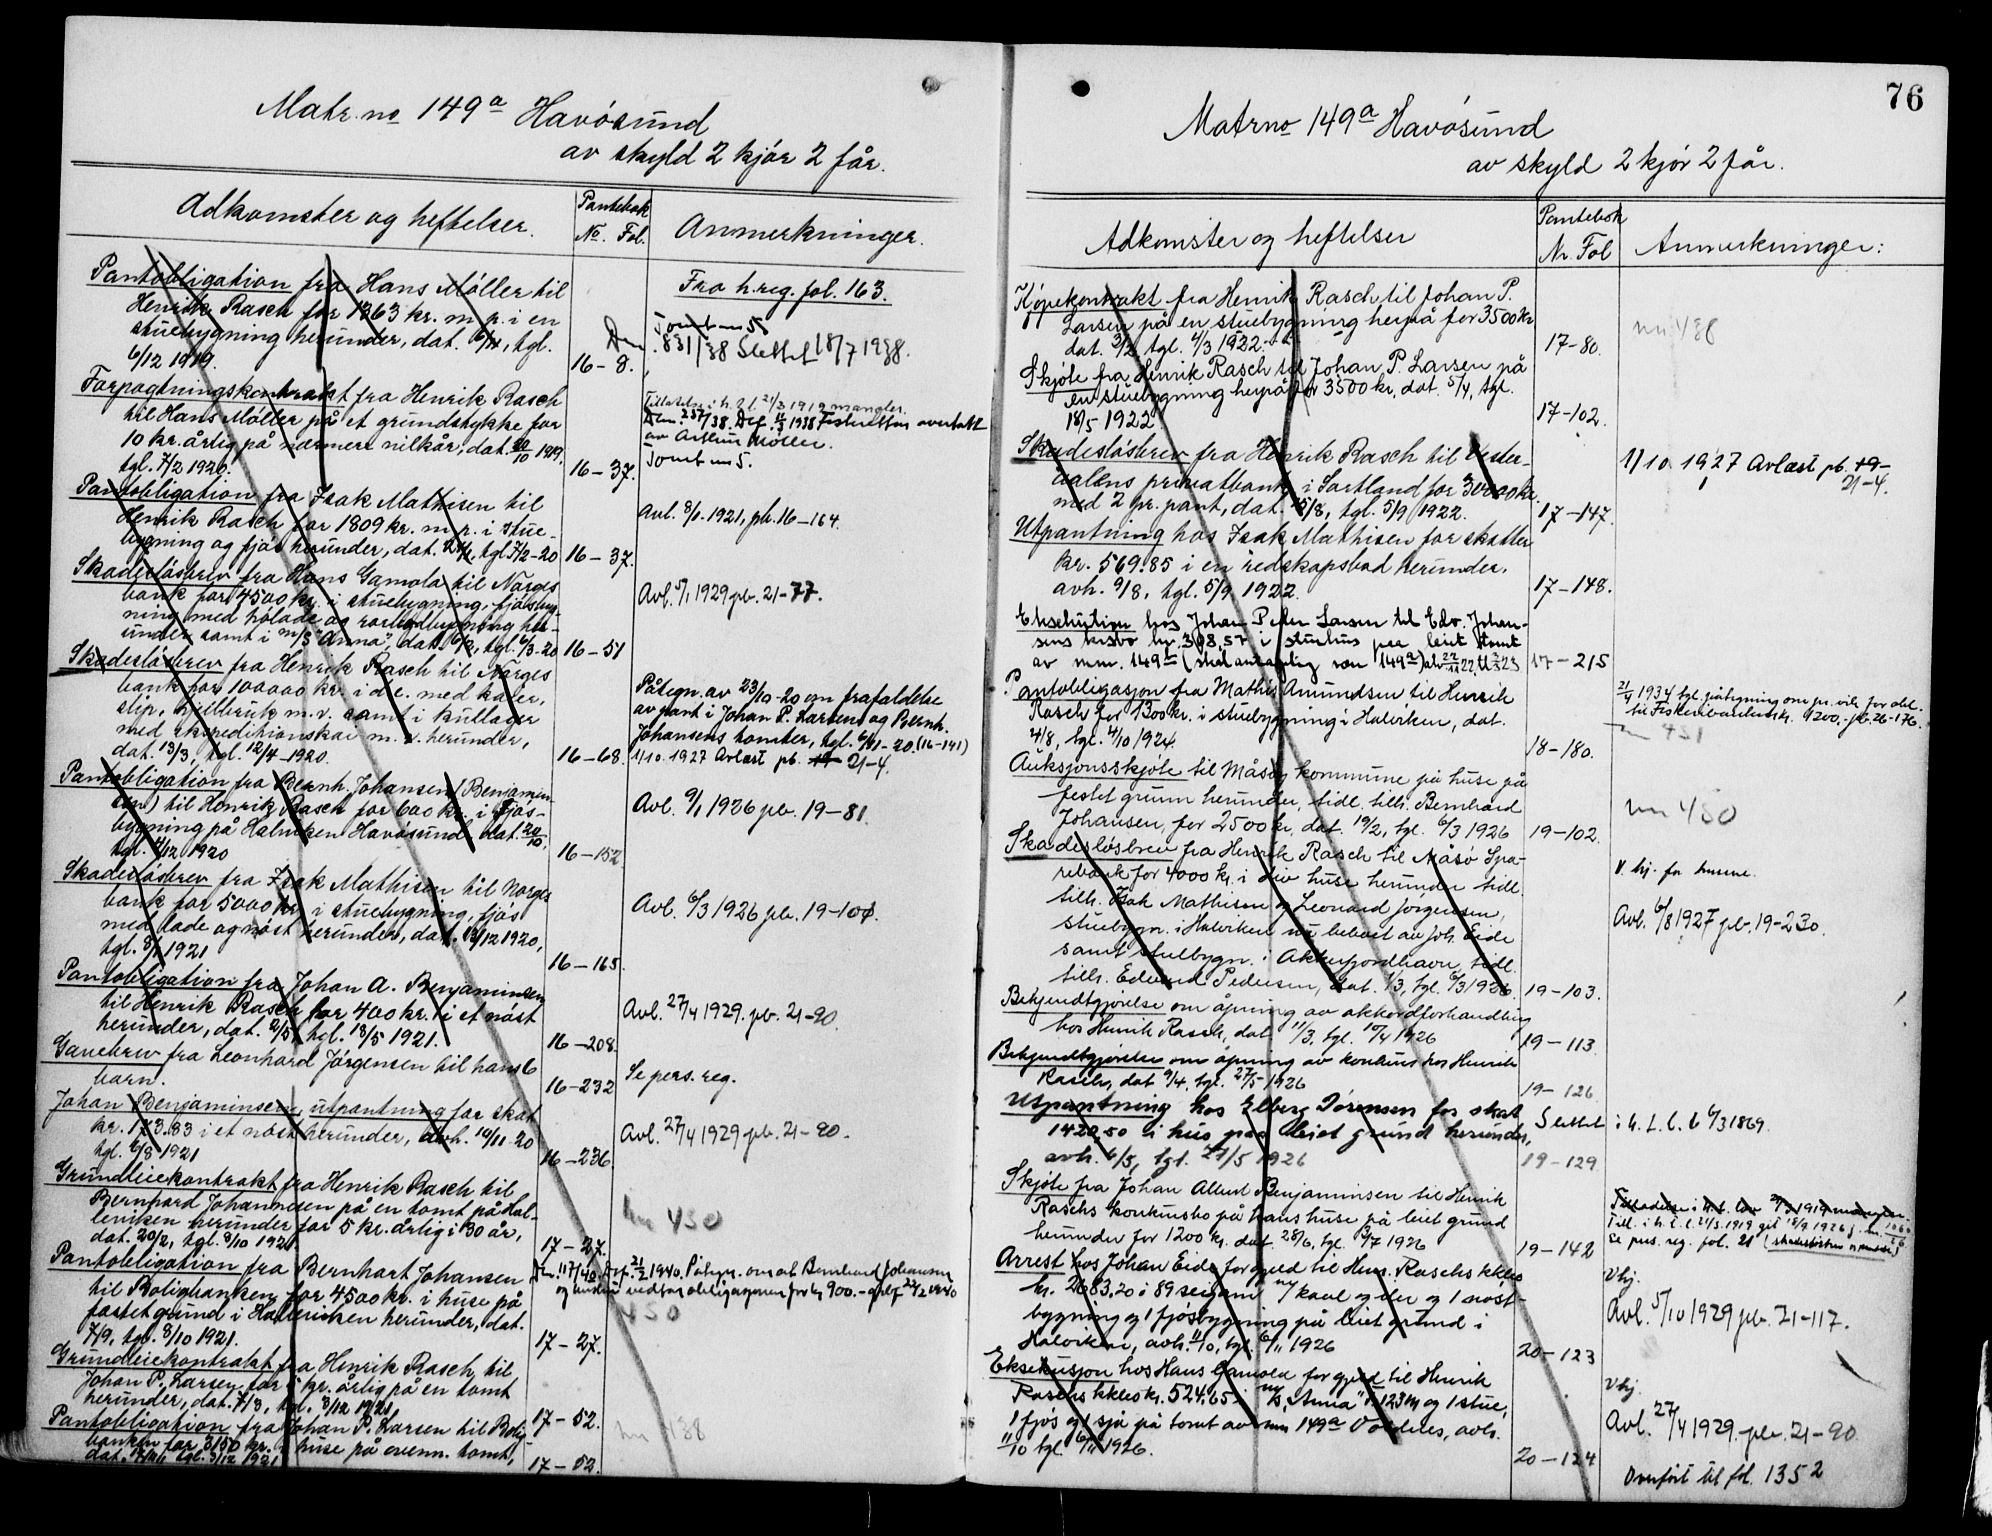 Matr. no 149a Havósund
av skyld 2 kjór 2 får.
Adkomster og heftelser.
Pantebok
No. Fol.
Anmerkninger.
Pantobligation fra Hans Møller til
Henrik Rasch for 1363 kr. m. p. i en
stuebygning herunder, dat. tgl.
6/12 1919.
16-8.
Fra h.reg. fol. 163.
831/38 Slettet 18/7 1938.
Forpagtningskontrakt fra Henrik Rasch
til Hans Møller på et grundstykke for
10 kr. årlig på nærmere vilkår, dat. 20/10 1919,
tgl. 7/2 1920.
16-37.
Tilladelse i h. t. l. 21/3 1919 mangler.
Festeretten overtatt
av Arthur Møller.
Tomt nr 5.
Pantobligation fra Isak Mathisen til
Henrik Rasch for 1809 kr. m. p. i stue-
bygning og fjós herunder, dat. tgl. 7/2-20
16-37.
Avl. 8/1. 1921, pb. 16-164.
Skadeslósbrev fra Hans Gamola til Norges
bank for 4500 kr. i stuebygning, fjósbyg-
ning med hólade og herunder
samt i m/s "Anna", dat. tgl. 6/3-20
16-51
Avl. 5/1 1929 pb. 21-77.
Skadeslósbrev fra Henrik Rasch til Norges
bank for 100000 kr. i d. e. med kaier,
slip, m.v. samt i kullager
med ekspeditionskai m. v. herunder,
dat. 13/3, tgl. 12/4-1920.
16-68.
Påtegn. av 23/10-20 om frafaldelse
av pant i Johan P. Larsens og Bernh.
Johansens tomter, tgl. 6/11-20 (16-141)
1/10. 1927 Avlæst pb. 21-4.
Pantobligation fra Bernh. Johansen (Benjamin-
sen) til Henrik Rasch for 600 kr. i fjós-
bygning på Halviken Havósund, dat. 20/10,
tgl. 4/12 1920
16-152
Avl. 9/1 1926 pb. 19-81.
Skadeslósbrev fra Isak Mathisen til Norges
bank for 5000 kr. i stuebygning, fjós
med lade og nøst herunder, dat. 13/12 1920,
tgl. 8/1 1921
16-165.
Avl. 6/3 1926 pb. 19-101.
Pantobligation fra Johan A. Benjaminsen
til Henrik Rasch for 400 kr. i et nøst
herunder, dat. 2/5 tgl. 18/5 1921.
16-208.
Avl. 27/4 1929. pb. 21-90.
Gavebrev fra Leonhard Jørgensen til hans 6
barn.
16-232
Se pers. reg.
Johan Benjaminsen, utpantning for skat
kr. 173.83 i et nøst herunder, avh. 10/11-20
tgl. 6/8 1921
16-236.
Avl. 27/4 1929 pb. 21-90.
Grundleiekontrakt fra Henrik Rasch til
Bernhard Johannesen på en tomt på Hal-
leviken herunder for 5 kr. årlig i 30 år,
dat. 20/2, tgl. 8/10 1921
17-27.
nr 450
Pantobligation fra Bernhart Johansen
til Boligbanken for 4500 kr. i huse på
festet grund i Halleviken herunder, dat.
7/9, tgl. 8/10 1921.
17-27.
450
Grundleiekontrakt fra Henrik Rasch til
Johan P. Larsen for 5 kr. årlig på en tomt
herunder, dat. 7/3, tgl. 3/12 1921.
17-52.
Pantobligation fra Johan P. Larsen til Bolig-
banken for 3150 kr. i huse på ovenn. tomt,
tgl. 3/12 1921
17-52.
nr 438
76
Matr no 149a Havósund
av skyld 2 kjór 2 får.
Adkomster og heftelser
Pantebok
Nr. Fol
Anmerkninger:
Kjøpekontrakt fra Henrik Rasch til Johan P.
Larsen på en stuebygning herpå for 3500 kr
dat. 3/2, tgl. 4/3 1922.
17-80.
nr 438
Skjøte fra Henrik Rasch til Johan P. Larsen på
en stuebygning herpå for 3500 kr, dat. 5/4, tgl.
18/5 1922
17-102.
Skadesløsbrev fra Henrik Rasch til Vester-
aalens privatbank i Sortland for 30000 kr.
med 2 pr. pant, dat. 15/8, tgl. 5/9 1922.
17-147.
1/10 1927 Avlæst pb. 19-
21-4.
Utpantning hos Isak Mathisen for skatter
kr. 569.85 i en redskapsbod herunder.
avh. 9/8, tgl. 5/9 1922.
17-148.
Eksekution hos Johan Peter Larsen til Edv. Johan-
sens kr. 308,57 i stuehus paa leiet tomt
av mnr. 149
17-215
Pantobligasjon fra Mathis Amundsen til Henrik
Rasch for 1300 kr. i stuebygning i Halviken, dat.
4/8, tgl. 4/10 1924.
18-180.
nr 451
Auksjonsskjøte til Måsøy kommune på huse på
festet grunn herunder, tidl. tilh. Bernhard
Johansen for 2500 kr, dat. 19/2, tgl. 6/3 1926
19-102.
nr 450
Skadesløsbrev fra Henrik Rasch til Måsø Spa-
rebank for 4000 kr. i div huse herunder tidl.
tilh. Isak Mathisen og Leonard Jørgensen,
stuebygn. i Halviken nu bebost av Joh. Eide
samt stuebygn. i Akkarfjordhavn, tidl.
tilh. Edvard Pedersen, dat. 1/3, tgl. 6/3 1926.
19-103.
V. hj. for husene.
Avl. 6/8 1927 pb. 19-230.
Bekjendtgjørelse om åpning av akkordforhandling
hos Henrik Rasch, dat 11/3, tgl. 10/4 1926
19-113.
Bekjendtgjørelse om åpning av konkurs hos Henrik
Rasch, dat 9/4, tgl. 27/5 1926
19-126.
Utpantning hos Elberg Sørensen for skat
1420,50 i hus paa leiet grund herunder,
avh. 6/5, tgl. 27/5 1926
19-129.
Slettet i h. t. l. 6/3 1869.
Skjøte fra Johan Albert Benjaminsen til Henrik
Raschs konkursbo på hans huse på leiet grund
herunder for 1200 kr. dat. 28/6, tgl. 3/7 1926
19-142
Till. i h. t. l. 21/3 1919 git
se pers. reg. fol. 21
Arrest hos Johan Eide for gjeld til Henr. Raschs kkbo
kr. 2683,20 i 89 seigarn og 1 nøst-
bygning og 1 fjøsbygning på leiet grund i
Halviken, avh. 11/10, tgl. 6/11 1926
20-123
V hj.
Avl. 5/10 1929 pb. 21-117.
Eksekusjon hos Hans Gamola for gjeld til Henrik
Raschs kkbo kr. 524.65 i m/k "Anna" og 1 stue,
1 fjøs og 1 sjå på tomt av mnr 149a avh.
11/10 tgl. 6/11 1926.
20-124
V hj.
Avl. 27/4 1929. pb. 21-90
Overført til fol. 1352